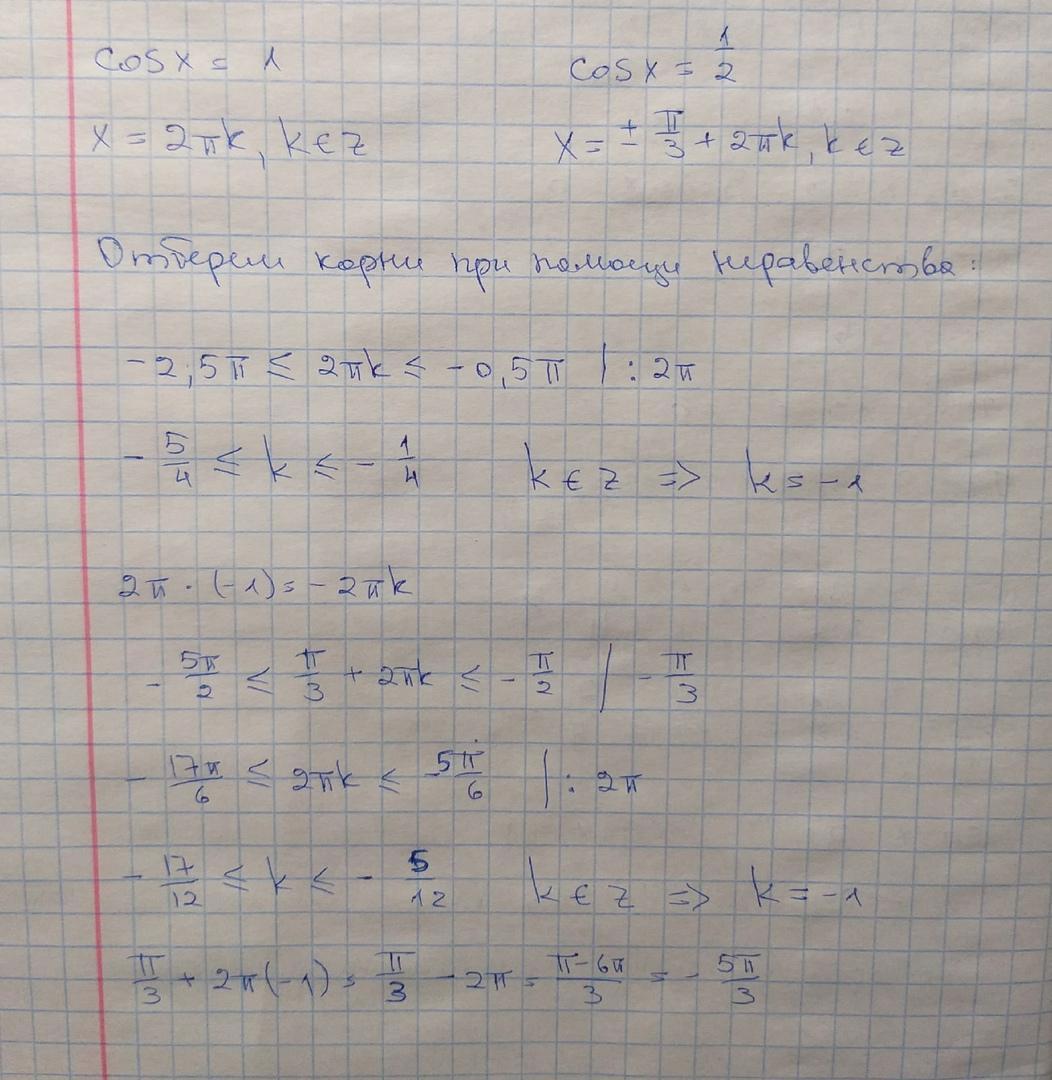 cos x = 1 cos x = 1/2
x = 2πk, k ∈ z x = ± π/3 + 2πk, k ∈ z
Отберем корни при помощи неравенства:
-2,5π ≤ 2πk ≤ -0,5π | : 2π
- 5/4 ≤ k ≤ - 1/4 k ∈ z => k = -1
2π · (-1) = -2πk
- 5π/2 ≤ π/3 + 2πk ≤ - π/2 | - π/3
- 17π/6 ≤ 2πk ≤ -5π/6 | : 2π
- 17/12 ≤ k ≤ - 5/12 k ∈ z => k = -1
π/3 + 2π(-1) = π/3 - 2π = π-6π/3 = - 5π/3